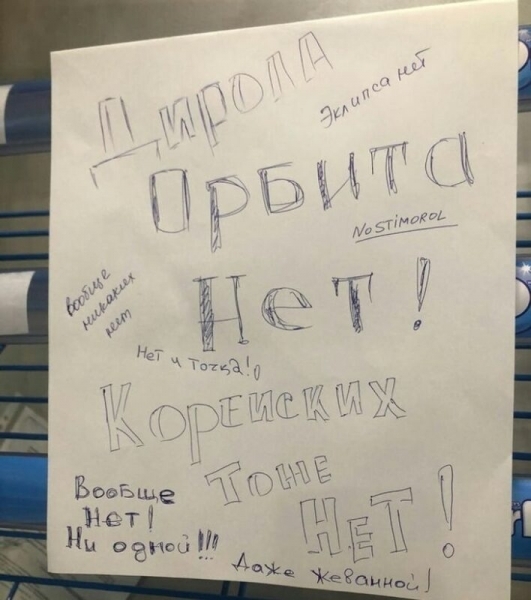 Дирола
Эклипса нет
Орбита
NoSTIMOROL
Вообще
никаких
нет
Нет!
Нет и точка!
Корейских
Тоже
Нет!
Вообще
Нет!
Ни одной!!!
Даже жеванной!